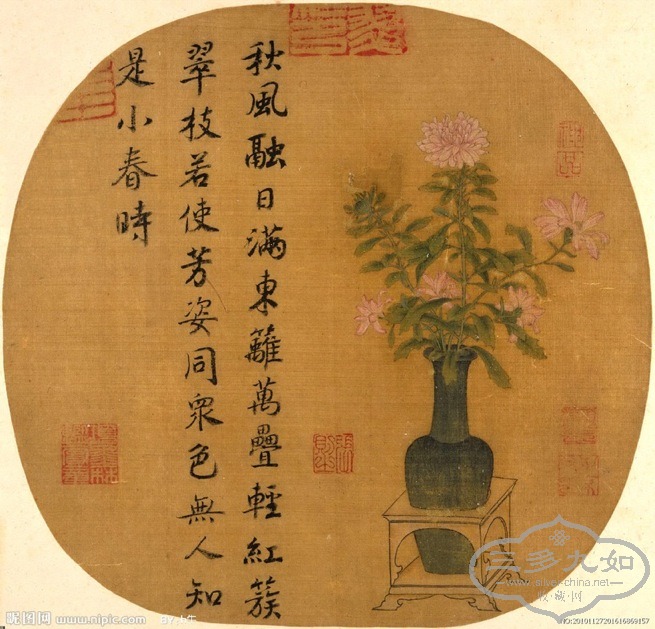 秋風融日滿東籬萬疊輕紅簇
翠枝若使芳姿同衆色無人知
是小春時
三多九如
www.silver-china.net
收藏网
昵图网 www.nipic.com BY:小牛
NO:20101127201616869157